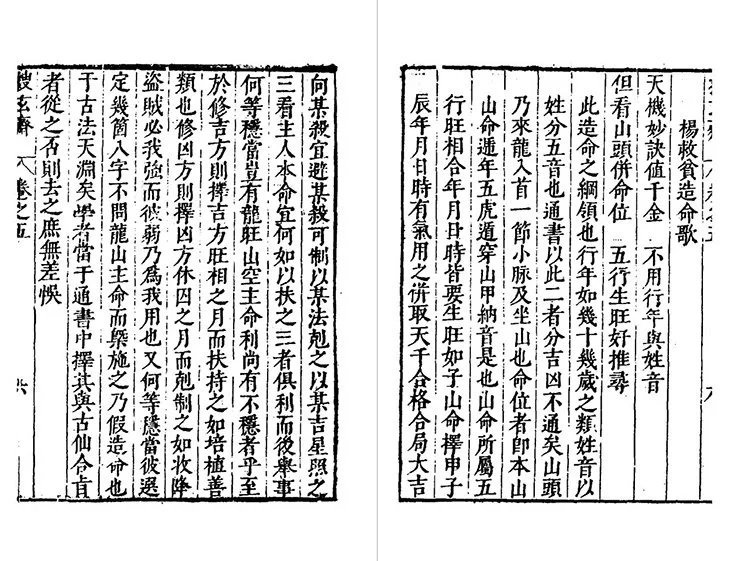 楊救貧造命歌
天機妙訣值千金　不用行年與姓音
但看山頭併命位　五行生旺好推尋
此造命之綱領也行年如幾十幾歲之類姓音以
姓分五音也通書以此二者分吉凶不通矣山頭
乃來龍入首一節小脉及坐山也命位者即本山
山命遁年五虎遁穿山甲納音是也山命所屬五
行旺相合年月日時皆要生旺如子山命擇甲子
辰年月日時有氣用之併取天干合格合局大吉
向某殺宜避某殺可制以某法剋之以某吉星照之
三看主人本命宜何如以扶之三者俱利而後舉事
何等穩當豈有龍旺山空主命利尚有不穩者乎至
於修吉方則擇吉方旺相之月而扶持之如培植善
類也修凶方則擇凶方休囚之月而剋制之如收降
盜賊必我強而彼弱乃為我用也又何等穩當彼選
定幾箇八字不問龍山主命而槩施之乃假造命也
于古法天淵矣學者當于通書中擇其與古仙合肯
者從之否則去之庶無差悞
卷之五